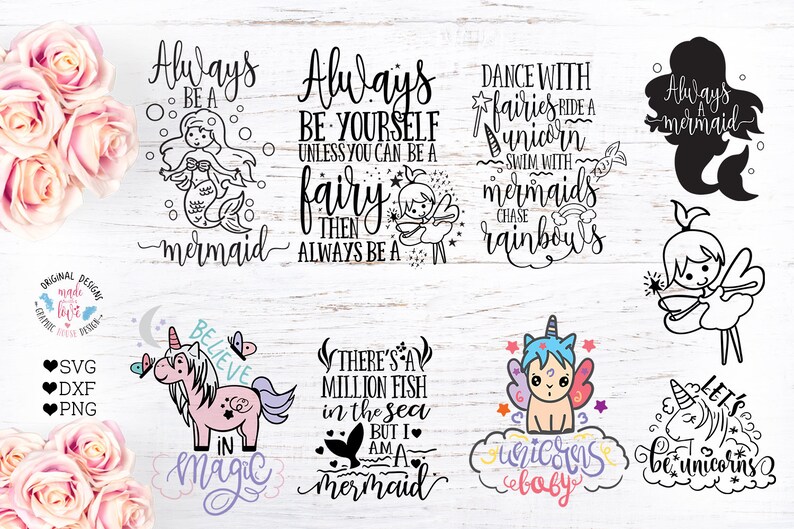 Always
BE A
mermaid
Always
BE YOURSELF
UNLESS YOU CAN BE A
fairy
THEN
ALWAYS BE A
DANCE WITH
fairies RIDE A
unicorn
SWIM WITH
mermaids
CHASE
rainbows
Always
A
mermaid
ORIGINAL DESIGNS
made
with
love
GRAPHIC HOUSE DESIGN
SVG
DXF
PNG
BELIEVE
IN
magic
THERE'S A
MILLION FISH
in the sea
BUT I
AM A
mermaid
unicorns
baby
LET'S
be unicorns